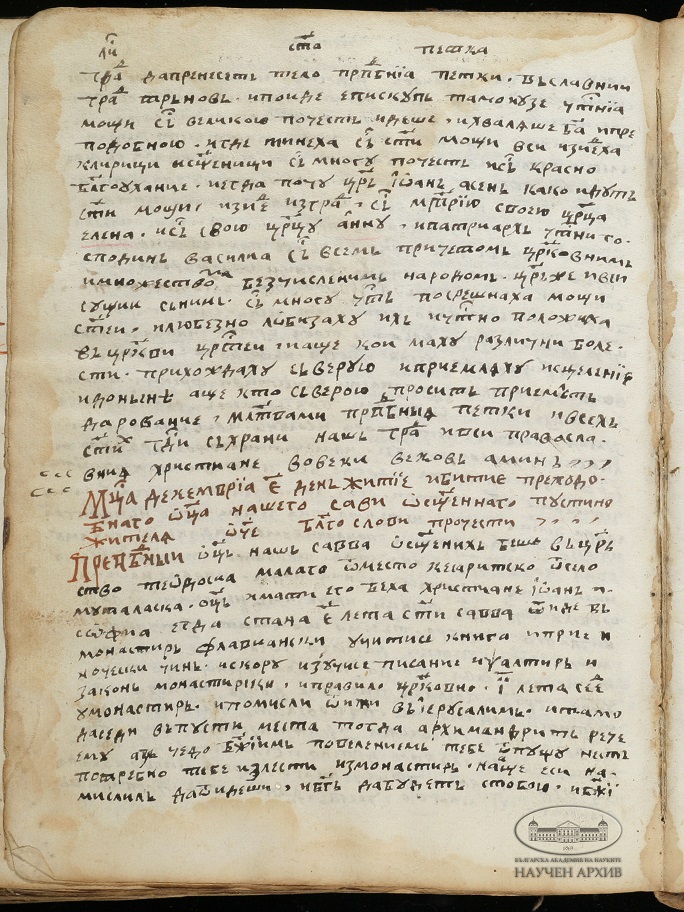 ли ст҃а петка
гра҇ да пренесеть тело прп҇бнїа петки. въ славнии
гра҇ трьновь. и поиде епискупь тамо и узе чт҇нїа
мощи съ великою почесть идеше, и хваляше б҃га и пре
подобною. и где минеха съ ст҃и мощи вси излеха
клирици и сщ҃еници съ многу почесть и съ красно
бл҃гоухание. и егда почу цр҃ь їѡань асень како идуть
ст҃и мощи, изиде из гра҇, съ мт҃рїю своею цр҃ца
елена. и съ свою цр҃цу анну, и патриархь чт҇ни го-
сподинь василиа съ всемь причетомь цр҃ковнимь
и множество безчисленимь народомь. цр҃ь же и вси
сущии сь нимь. съ многу чт҇ь посрещнаха мощи
ст҃еи, и любезно лобизаху ихь и чт҇но положиха
въ цр҃кви цр҃стеи, и аще кои имаху различни боле-
сти. прихождаху съ верую и приемляху исцеленїе
и донынѣ аще кто съ верою просить приемлеть
дарование, мл҃твами прп҇бныя петки и всехь
ст҃и г҃ди съхрани нашь гра҇ и вси правосла-
вния христиане во веки вековь аминь
Мц҃а декемврїа е҃ день житїе и битие преподо-
бнаго ѡц҃а нашего сави ѡсщ҃еннаго пустино
жителя ѡч҃е бл҃гослови прочести
Преп҇бныи ѡц҃ь нашь савва ѡсщ҃енихь беше въ цр҃ь
ство теѡдосиа малаго ѿ место кесариско ѿ село
муталаска. ѡц҃ь и мати его беха христиане їѡань и
сѡфиа егда стана е҃ лета ст҃и савва ѿиде въ
монастирь флавиански учитисе книга и прие и
ночески чинь. и скору изучисе писание и ѱалтирь и
законь монастирски, и правило цр҃ковно. ї҃ лета седе
у монастирь. и помисли ѿити въ їерусалимь. и тамо
да седи въ пусти места тогда архимандрить рече
ему азь чедо бж҃їимь повелениемь тебе ѿпущу несть
потребно тебе излести из монастирь. на аще еси на-
мислиль да ѿидеши, и б҃гь да будеть с тобою. и бж҃ї
БЪЛГАРСКА АКАДЕМИЯ НА НАУКИТЕ
НАУЧЕН АРХИВ